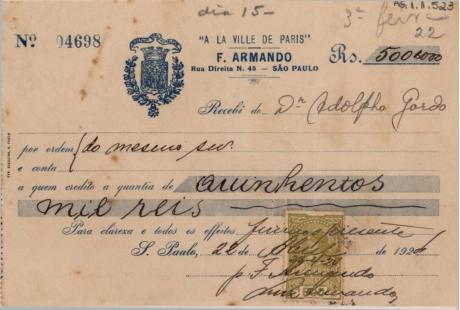 dia 15-
PG.I.II.523
3ª
22
Nº 04698
"A LA VILLE DE PARIS"
F. ARMANDO
Rua Direita N. 45 — SÃO PAULO
Rs. 500$000
Recebi do Dr Adolpho Gordo
por ordem do mesmo snr.
e conta
a quem credito a quantia de quinhentos
mil reis
Para clareza e todos os effeitos firmo o presente
S. Paulo, 22 de 192
p. F. Armando
Armando